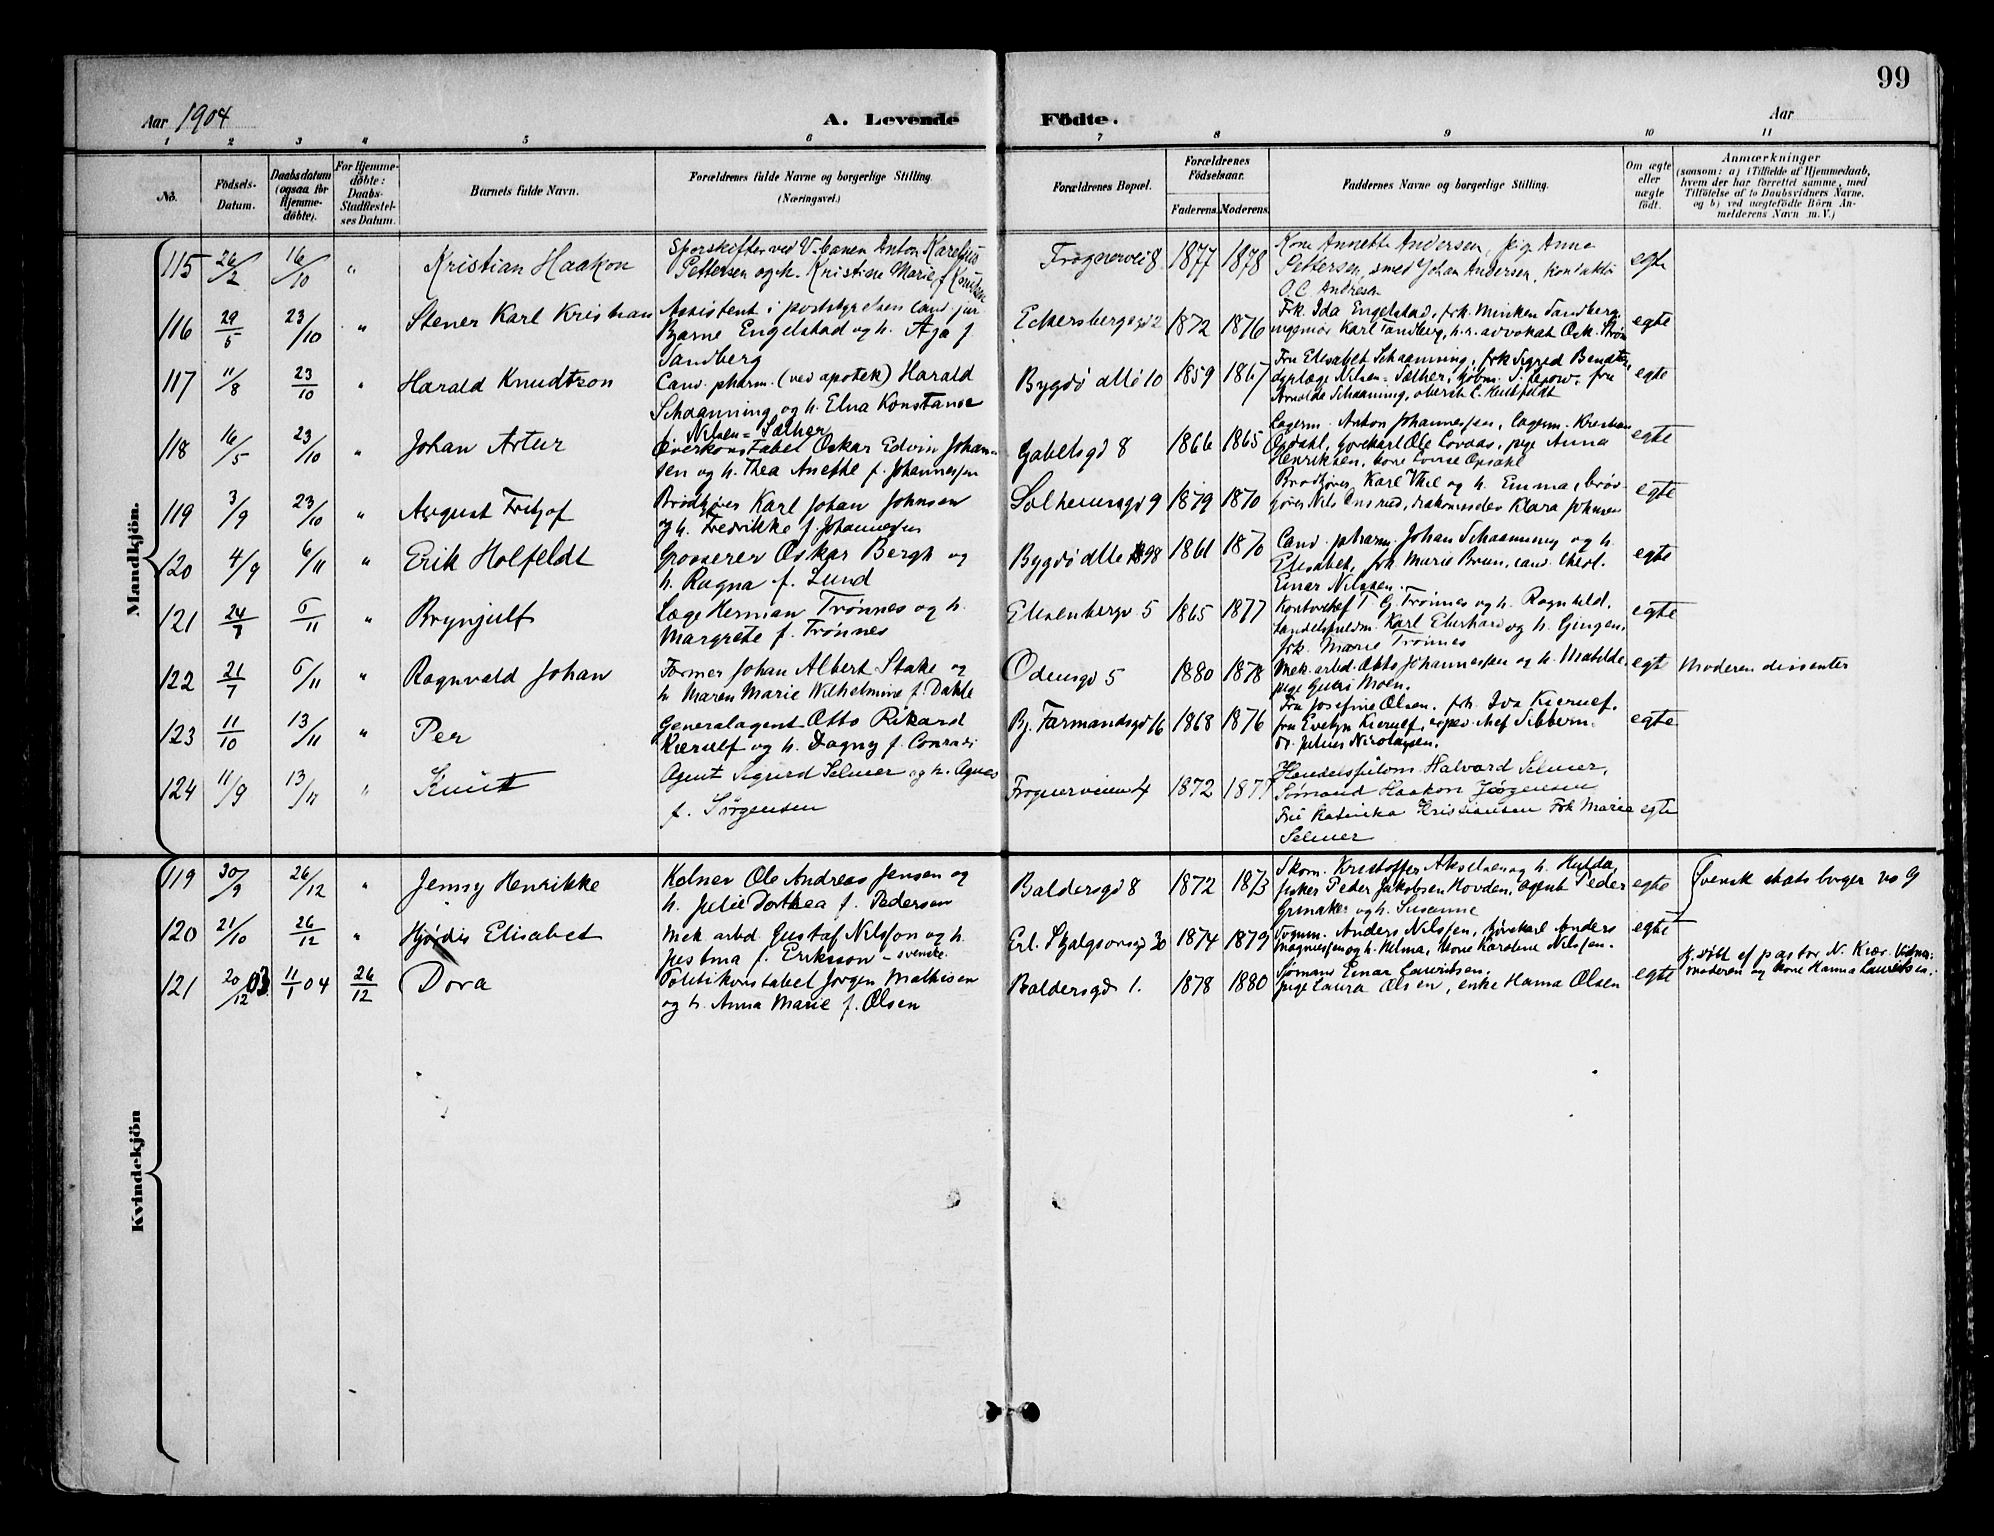 99
Aar 1904
A. Levende
Födte.
Aar
1 2 3 4 5 6 7 8 9 10 11
No.
Födsels-Datum.
Daabsdatum (ogsaa for Hjemmedöbte).
For Hjemmedöbte: Daabs-Stadfæstelses Datum.
Barnets fulde Navn.
Forældrenes fulde Navne og borgerlige Stilling. (Næringsvei.)
Forældrenes Bopæl.
Forældrenes Födselsaar.
Faderens. Moderens.
Faddernes Navne og borgerlige Stilling.
Om ægte eller uægte födt.
Anmærkninger
(saasom: a) i Tilfælde af Hjemmedaab, hvem der har forrettet samme, med Tilföielse af to Daabsvidners Navne, og b) ved uægtefödte Börn Anmelderens Navn m. V.)
Mandkjön.
115 26/2 16/10 " Kristian Haakon
Sporskifter ved V-banen Anton Karelius
Pettersen og h. Kristine Marie f. Knutsen
Frognervei 8 1877 1878
Kone Annette Andersen, pige Anna
Pettersen, smed Johan Andersen, kontorist
O.C. Andresen
egte
116 29/5 23/10 " Stener Karl Kristian
Assistent i poststyrelsen cand. jur.
Bjarne Engelstad og h. Aja f.
Sandberg
Eckersbergsgd 2 1872 1876
Frk Ida Engelstad, frk Minken Sandberg,
Karl Sandberg, h.r. advokat Osk.
egte
117 11/8 23/10 " Harald Knudtzon
Cand. pharm. (ved apotek) Harald
Schaanning og h. Elna Konstanse
f. Nilsen-Sæther
Bygdö allé 10 1859 1867
Fru Elisabet Schaanning, frk Sigrid
Nilsen-Sæther, kjøbm. fru
Schaanning, oberstl. C. Holfeldt
egte
118 16/5 23/10 " Johan Artur
Overkonstabel Oskar Edvin Johan-
sen og h. Thea Anethe f. Johannessen
Gabelsgd 8 1866 1865
Lagerm. Anton Johannessen, lagerm. Kristian
Opdahl, gaardkarl Ole Lovaas, pige Anna
Henriksen, kone Lovise Opdahl
egte
119 3/9 23/10 " August Fritjof
Brødkjører Karl Johan Johnsen
og h. Fredrikke f. Johannessen
Solheimsgd 9 1879 1870
Brødkjører Karl Thil og h. Emma, brød-
kjører Nils Ensrud, Klara Johnsen
egte
120 4/9 6/11 " Erik Holfeldt
Grosserer Oskar Bergh og
h. Ragna f. Lund
Bygdö alle 98 1861 1870
Cand. pharm. Johan Schaanning og h.
Elisabet, frk Marie Bruun, cand. theol.
Einar Nilssen.
egte
121 24/7 6/11 " Brynjulf
Læge Herman Trønnes og h.
Margrete f. Trønnes
Elisenbergv 5 1865 1877
Kontorchef T. G. Trønnes og h. Ragnhild,
handelsfuldm. Karl Eberhard og h.
frk. Marie Trønnes
egte
122 21/7 6/11 " Ragnvald Johan
Former Johan Albert Stake og
h. Maren Marie Wilhelmine f. Dahle
Odinsgd 5 1880 1878
Mek. arbd. Otto Johannessen og h. Matilde,
pige Guri Moen.
egte Moderen dissenter
123 11/10 13/11 " Per
Generalagent Otto Rikard
Kierulf og h. Dagny f. Conradi
Bj. Farmandsgd 16 1868 1876
Fru Josefine Olsen, frk. Iva Kierulf,
fru Evelyn Kierulf, exped. chef Sibbern.
dr. Julius Nicolaysen.
egte
124 11/9 13/11 " Knut
Agent Sigurd Selmer og h. Agnes
f. Jørgensen
Frognerveien 4 1872 1877
Handelsfuldm. Halvard Selmer,
Sømand Haakon Jørgensen
Fru Katinka Kristiansen Frk Marie
Selmer
egte
Kvindekjön
119 30/9 26/12 " Jenny Henrikke
Kelner Ole Andreas Jensen og
h. Julie Dorthea f. Pedersen
Baldersgd 8 1872 1873
Skom. Kristoffer Akselsen og h. Hulda,
fisker Peder Jakobsen Hovden, agent Peder
Grinaker og h. Susanne
egte Svensk statsborger no 9
120 21/10 26/12 " Hjørdis Elisabet
Mek. arbd. Gustaf Nilsson og h.
Justina f. Eriksson - svenske.
Erl. Skjalgsønsgd 20 1874 1879
Anders Nilssen, Anders
Magnussen og h. Hilma, kone Karoline Nilssen.
egte
121 20/12 03 11/1 04 26/12 Dora
Politikonstabel Jørgen Mathisen
og h. Anna Marie f. Olsen
Baldersgd 1. 1878 1880
Sømand Einar Lauritsen,
pige Laura Olsen, enke Hanna Olsen
egte
Hj. døbt af pastor N. Kiær. Vidner:
moderen og kone Hanna Lauritsen.